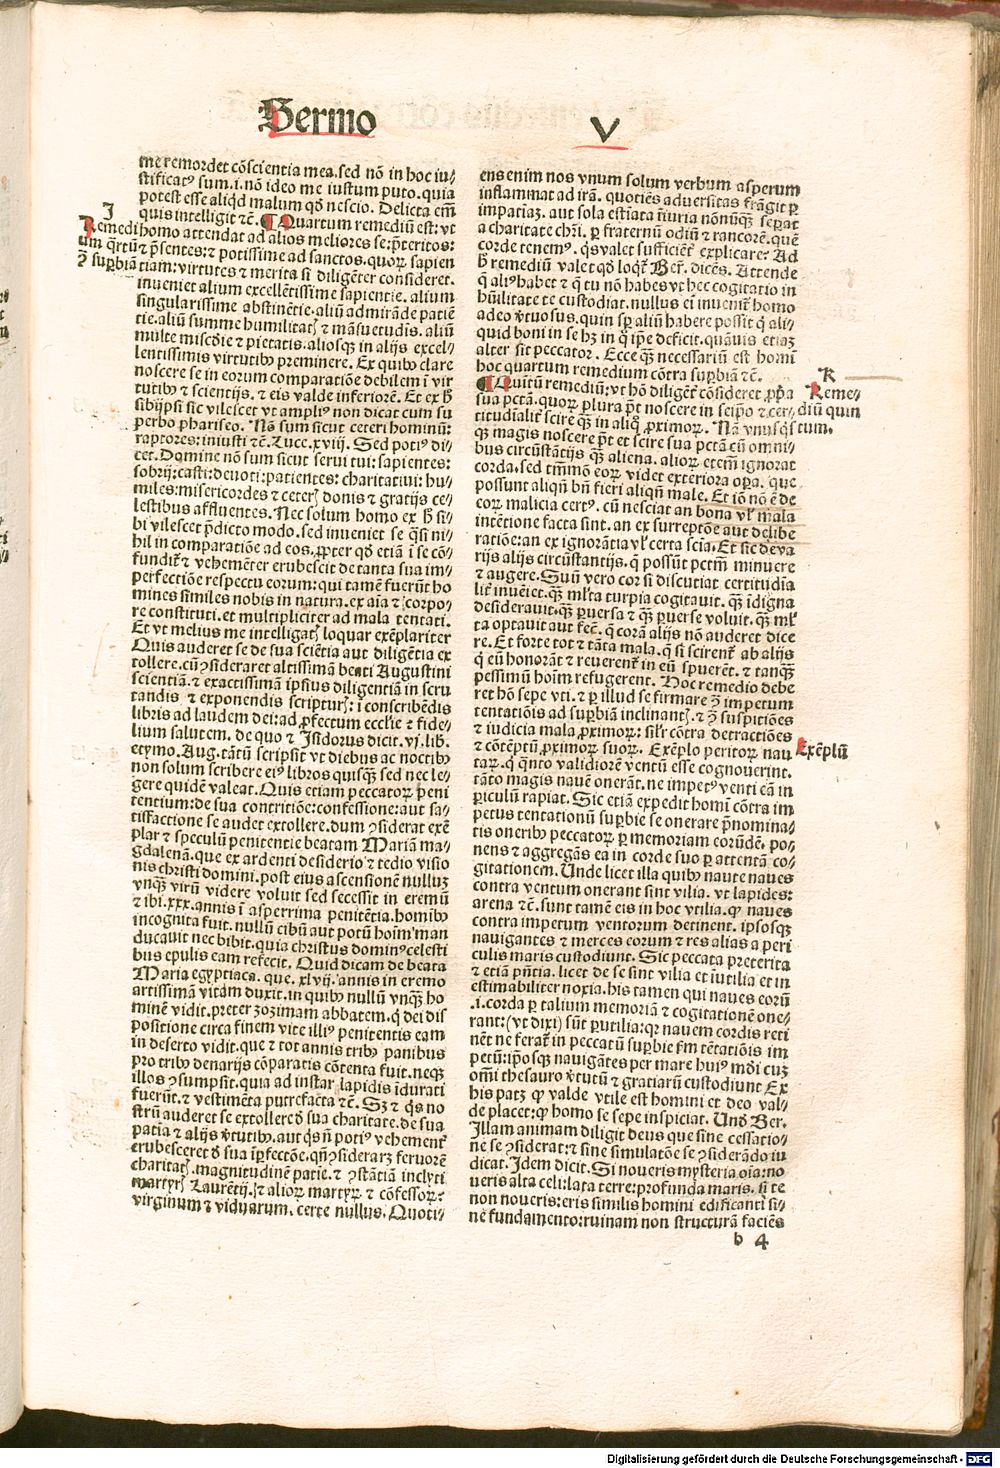 Sermo
V
me remordet cõscientia mea. sed nõ in hoc iu/
stificatꝰ sum. i. nõ ideo me iustum puto. quia
potest esse aliqd malum qd nescio. Delicta em̃
quis intelligit ⁊c̃. ¶ Quartum remediũ est: vt
homo attendat ad alios meliores se: p̃teritos:
p̃sentes: ⁊ potissime ad sanctos. quoꝝ sapien
tiam: virtutes ⁊ merita si diligẽter consideret.
inueniet alium excellẽtissime sapientie. alium
singularissime abstinẽtie. aliũ admirãde patiẽ
tie. aliũ summe humilitatꝭ ⁊ mãsuetudis. aliũ
multe miscðie ⁊ pietatis. aliosqꝫ in alijs excel/
lentissimis virtutibꝰ preminere. Ex quibꝰ clare
noscere se in eorum comparatiõe debilem ĩ vir
tutibꝰ ⁊ scientijs. ⁊ eis valde inferiorẽ. Et ex h̃
sibijpsi sic vilescet vt ampliꝰ non dicat cum su
perbo phariseo. Nõ sum sicut ceteri hominũ:
raptores: iniusti ⁊c̃. Luce. xviij. Sed potiꝰ di/
cet. Domine nõ sum sicut serui tui: sapientes:
sobrij: casti: deuoti: patientes: charitatiui: hu/
miles: misericordes ⁊ ceterꝭ donis ⁊ gratijs ce/
lestibus affluentes. Nec solum homo ex h̃ si/
bi vilescet p̃dicto modo. sed inueniet se q̃si ni/
hil in comparatiõe ad eos. ꝓpter qd etiã ĩ se cõ/
fundit᷑ ⁊ vehemẽter erubescit de tanta sua im/
perfectiõe respectu eorum: qui tamẽ fuerũt ho
mines similes nobis in natura. ex aĩa ⁊ corpo/
re constituti. et multipliciter ad mala tentati.
Et vt melius me intelligatꝭ loquar exẽplariter
Quis auderet se de sua sciẽtia aut diligẽtia ex
tollere. cũ ↄsideraret altissimã beati Augustini
scientiã. ⁊ exactissimã ipsius diligentiã in scru
tandis ⁊ exponendis scripturꝭ: ĩ conscribẽdis
libris ad laudem dei: ad ꝓfectum ecclie ⁊ fide/
lium salutem. de quo ⁊ Isidorus dicit. vj. lib.
etymo. Aug. tãtũ scripsit vt diebus ac noctibꝰ
non solum scribere eiꝰ libros quisqꝫ sed nec le/
gere quidẽ valeat. Quis etiam peccatoꝝ peni
tentium: de sua contritiõe: confessione: aut sa/
tisfactione se audet extollere. dum ↄsiderat exẽ
plar ⁊ speculũ penitentie beatam Mariã ma/
gdalenã. que ex ardenti desiderio ⁊ tedio visio
nis christi domini. post eius ascensionẽ nulluꝫ
vnqꝫ virũ videre voluit sed secessit in eremũ
⁊ ibi. xxx. annis ĩ asperrima penitẽtia. homibꝰ
incognita fuit. nullũ cibũ aut potũ hoĩm man
ducauit nec bibit. quia christus dominꝰ celesti
bus epulis eam refecit. Quid dicam de beata
Maria egyptiaca. que. xlvij. annis in eremo
artissimã vitam duxit. in quibꝰ nullũ vnqꝫ ho
minẽ vidit. preter zozimam abbatem. q̃ dei dis
positione circa finem vite illiꝰ penitentis eam
in deserto vidit. que ⁊ tot annis tribꝰ panibus
pro tribꝰ denarijs cõparatis cõtenta fuit. neqꝫ
illos ↄsumpsit. quia ad instar lapidis ĩdurati
fuerũt. ⁊ vestimẽta putrefacta ⁊c̃. Sꝫ ⁊ q̃s no
strũ auderet se extollere ð sua charitate. de sua
patia ⁊ alijs ṽtutibꝰ. aut q̃s ñ potiꝰ vehement᷑
erubesceret ð sua ĩꝑfectõe. qñ ↄsiderarꝫ feruorẽ
charitatꝭ. magnitudinẽ patie. ⁊ ↄstãtiã inclyti
martyrꝭ Laurẽtij. ⁊ alioꝝ martyꝝ. ⁊ cõfessoꝝ:
virginum ⁊ viduarum. certe nullus. Quoti/
J
Remedi
um q̃rtũ
ↄ̃ suꝑbiã
ens enim nos vnum solum verbum asperum
inflammat ad irã. quotiẽs aduersitas frãgit ꝑ
impatiaꝫ. aut sola estiata ĩiuria nõnũqꝫ seꝑat
a charitate chr̃i. ꝑ fraternũ odiũ ⁊ rancorẽ. quẽ
corde tenemꝰ. q̃s valet sufficient᷑ explicare? Ad
h̃ remediũ valet qd loqt᷑ Ber. dicẽs. Attende
q̃ aliꝰ habet ⁊ q̃ tu nõ habes vt hec cogitatio in
hũilitate te custodiat. nullus em̃ inuenit᷑ homo
adeo ṽtuosus. quin sꝑ aliũ habere possit q̃ ali/
quid boni in se hꝫ in q̃ ip̃e deficit. quãuis etiaꝫ
alter sit peccator. Ecce qꝫ necessariũ est homĩ
hoc quartum remedium cõtra suꝑbiã ⁊c̃.
¶ Quitũ remediũ: vt hõ diligẽt᷑ cõsideret ꝓp̃a
sua pctã. quoꝝ plura põt noscere in seipo ⁊ cer/
titudialit᷑ scire qꝫ in aliqͥ ꝓximoꝝ. Nã vnusqͥsqꝫ
qꝫ magis noscere põt et scire sua pctã cũ omni/
bus circũstãtijs qꝫ aliena. alioꝝ etem̃ ignorat
corda. sed tm̃mõ eoꝝ videt exteriora oꝑa. que
possunt aliqñ bñ fieri aliqñ male. Et iõ nõ ẽ de
eoꝝ malicia certꝰ. cũ nesciat an bona vl᷑ mala
intẽtione facta sint. an ex surreptõe aut delibe
ratiõe: an ex ignorãtia vl᷑ certa scia. Et sic de va
rijs alijs circũstantijs. q̃ possũt pctm̃ minuere
⁊ augere. Suũ vero cor si discutiat certitudĩa
lit᷑ inuẽiet. qꝫ ml᷑ta turpia cogitauit. qꝫ ĩdigna
desiderauit. qꝫ ꝑuersa ⁊ qꝫ ꝑuerse voluit. qꝫ ml᷑
ta optauit aut fec̃. q̃ corã alijs nõ auderet dice
re. Et forte tot ⁊ tãta mala. q̃ si scirent᷑ ab alijs
q̃ eũ honorãt ⁊ reuerent᷑ in eũ spuerẽt. ⁊ tanqꝫ
pessimũ hoĩm refugerent. Hoc remedio debe
ret hõ sepe vti. ⁊ ꝑ illud se firmare ↄ̃ impetum
tentatiõis ad suꝑbiã inclinantꝭ. ⁊ ↄ̃ suspitiões
⁊ iudicia mala ꝓximoꝝ: sil᷑r cõtra detractiões
⁊ cõtẽptũ ꝓximoꝝ suoꝝ. Exẽplo peritoꝝ nau
taꝝ. q̃ q̃nto validiorẽ ventũ esse cognouerint.
tãto magis nauẽ onerãt. ne impetꝰ venti eã in
ꝑiculũ rapiat. Sic etiã expedit homĩ cõtra im
petus tentationũ suꝑbie se onerare p̃nomina/
tis oneribꝰ peccatoꝝ ꝑ memoriam eorũdẽ. po/
nens ⁊ aggregãs ea in corde suo ꝑ attentã co/
gitationem. Unde licet illa quibꝰ naute naues
contra ventum onerant sint vilia. vt lapides:
arena ⁊c̃. sunt tamẽ eis in hoc vtilia. qꝙ naues
contra impetum ventorum detinent. ipsosqꝫ
nauigantes ⁊ merces eorum ⁊ res alias a peri
culis maris custodiunt. Sic peccata preterita
⁊ etiã pñtia. licet de se sint vilia et ĩutilia et in
estimabiliter noxia. his tamen qui naues eorũ
.i. corda ꝑ talium memoriã ⁊ cogitationẽ one/
rant: (vt dixi) sũt ꝑutilia: qꝛ nauem cordis reti
nẽt ne ferat᷑ in peccatũ suꝑbie ẽm tẽtatiõis im
petũ: ip̃osqꝫ nauigãtes per mare huiꝰ mũdi cuꝫ
om̃i thesauro ṽtutũ ⁊ gratiarũ custodiunt Ex
his patꝫ qꝙ valde vtile est homini et deo val/
de placet: qꝙ homo se sepe inspiciat. Unð Ber.
Illam animam diligit deus que sine cessatio/
ne se ↄsiderat: ⁊ sine simulatõe se ↄsiderãdo iu
dicat. Idem dicit. Si noueris mysteria oĩa: no
ueris alta celi: lata terre: profunda maris. si te
non noueris: eris similis homini edificanti si/
ne fundamento: ruinam non structurã faciẽs
K
Reme/
diũ quin
tum.
Exẽplũ
b 4
Digitalisierung gefördert durch die Deutsche Forschungsgemeinschaft - DFG